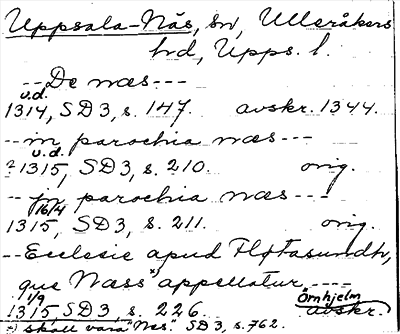 Uppsala-Näs, sn, Ulleråkers
hd, Upps. l.
--De næs---
u.d.
1314, SD3, s. 147. avskr. 1344.
--in parochia næs---
u.d.
?1315, SD3, s. 210. orig.
--jn parochia næs---
16/4
1315, SD3, s. 211. orig.
--Ecclesie apud Fløtasundh,
que Næss*) appellatur----
1/9 Örnhjelm
1315, SD3, s. 226. avskr.
*) skall vara "Nes". SD3, s. 762.